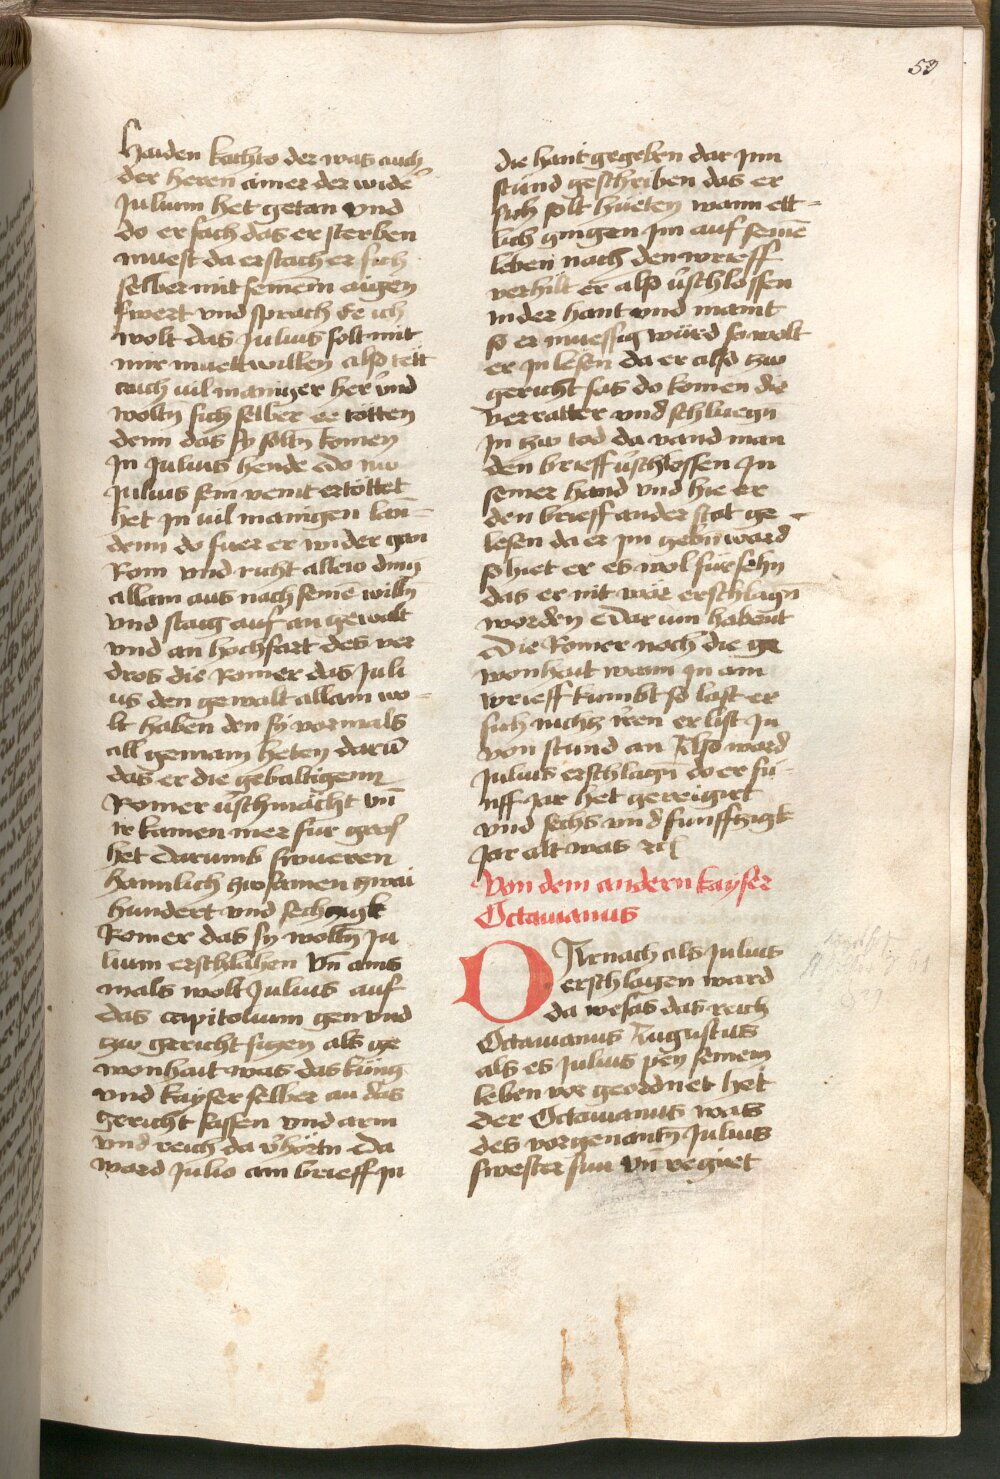 59
Haiden kachto der was auch
der heren ainer der wider
Julium het getan vnd
do er sach das er sterben
muest da erstach er sich
selber mit seinem aigen
swert vnd sprach ee ich
wolt das Julius solt mit
mir muetwillen also tett
auch uil maniger her vnd
woltn sich selber ee totten
denn das sy soltn komen
in Julius hende Do nu
Julius sein veint ertottet
het In uil manigen lan-
denn do fuer er wider gan
Rom vnd richt allew ding
allain aus nach seinē willn
vnd staig auf an gewalt
vnd an hochfart des ver
dros die Romer das Juli
us den gewalt allain wo-
lt haben den sy vormals
all gemain heten darū
das er die gebaltigenn
Romer v̓schmächt vn̄
ir kamen mer für gros
het darumb swueren
haimlich zwsamen zwai
hundert vnd sechczigk
Romer das sy woltn Ju
lium erschlahen vn̄ ains
mals wolt Julius auf
das capitolium gen vnd
zw gericht siczen als ge
wonhait was das küng
vnd kayser selber an das
gericht sassen vnd arm
vnd reich da v̓hörtn Da
ward Julio ain brieff jn
die hant gegeben dar jnn
stund geschriben das er
sich solt hüeten wann ett-
lich gingen jm auf seinē
leben nach den wrieff
verhilt er also v̓schlossen
in der hant vnd maint
so er muessig würd so wolt
er jn lesen da er also zw
gericht sas do komen die
verratter vnd schluegn
jn zw tod da vand man
den brieff v̓schlossen jn
seiner hand vnd hie er
den brieff an der stat ge-
lesen da er jm gebn̄ ward
so hiet er es wol fürsehn
das er nit wär erschlagn
worden Dar um habent
Die Romer noch die ge
wonhait wann jn ain
wrieff kumbt so last er
sich nichcz irren er list jn
von stund an Also ward
Julius erschlagn do er fü-
nff jar het gereigirt
vnd sechs vnd funffczigk
Jar alt was
Von dem andern kayser
Octauianus
DArnach als Julius
erschlagen ward
da wesas das reich
Octauianus Augustus
als es Julius pey seinem
leben vor geordnet het
der Octauianus was
des vorgenantn Julius
swester sun vn̄ regiret